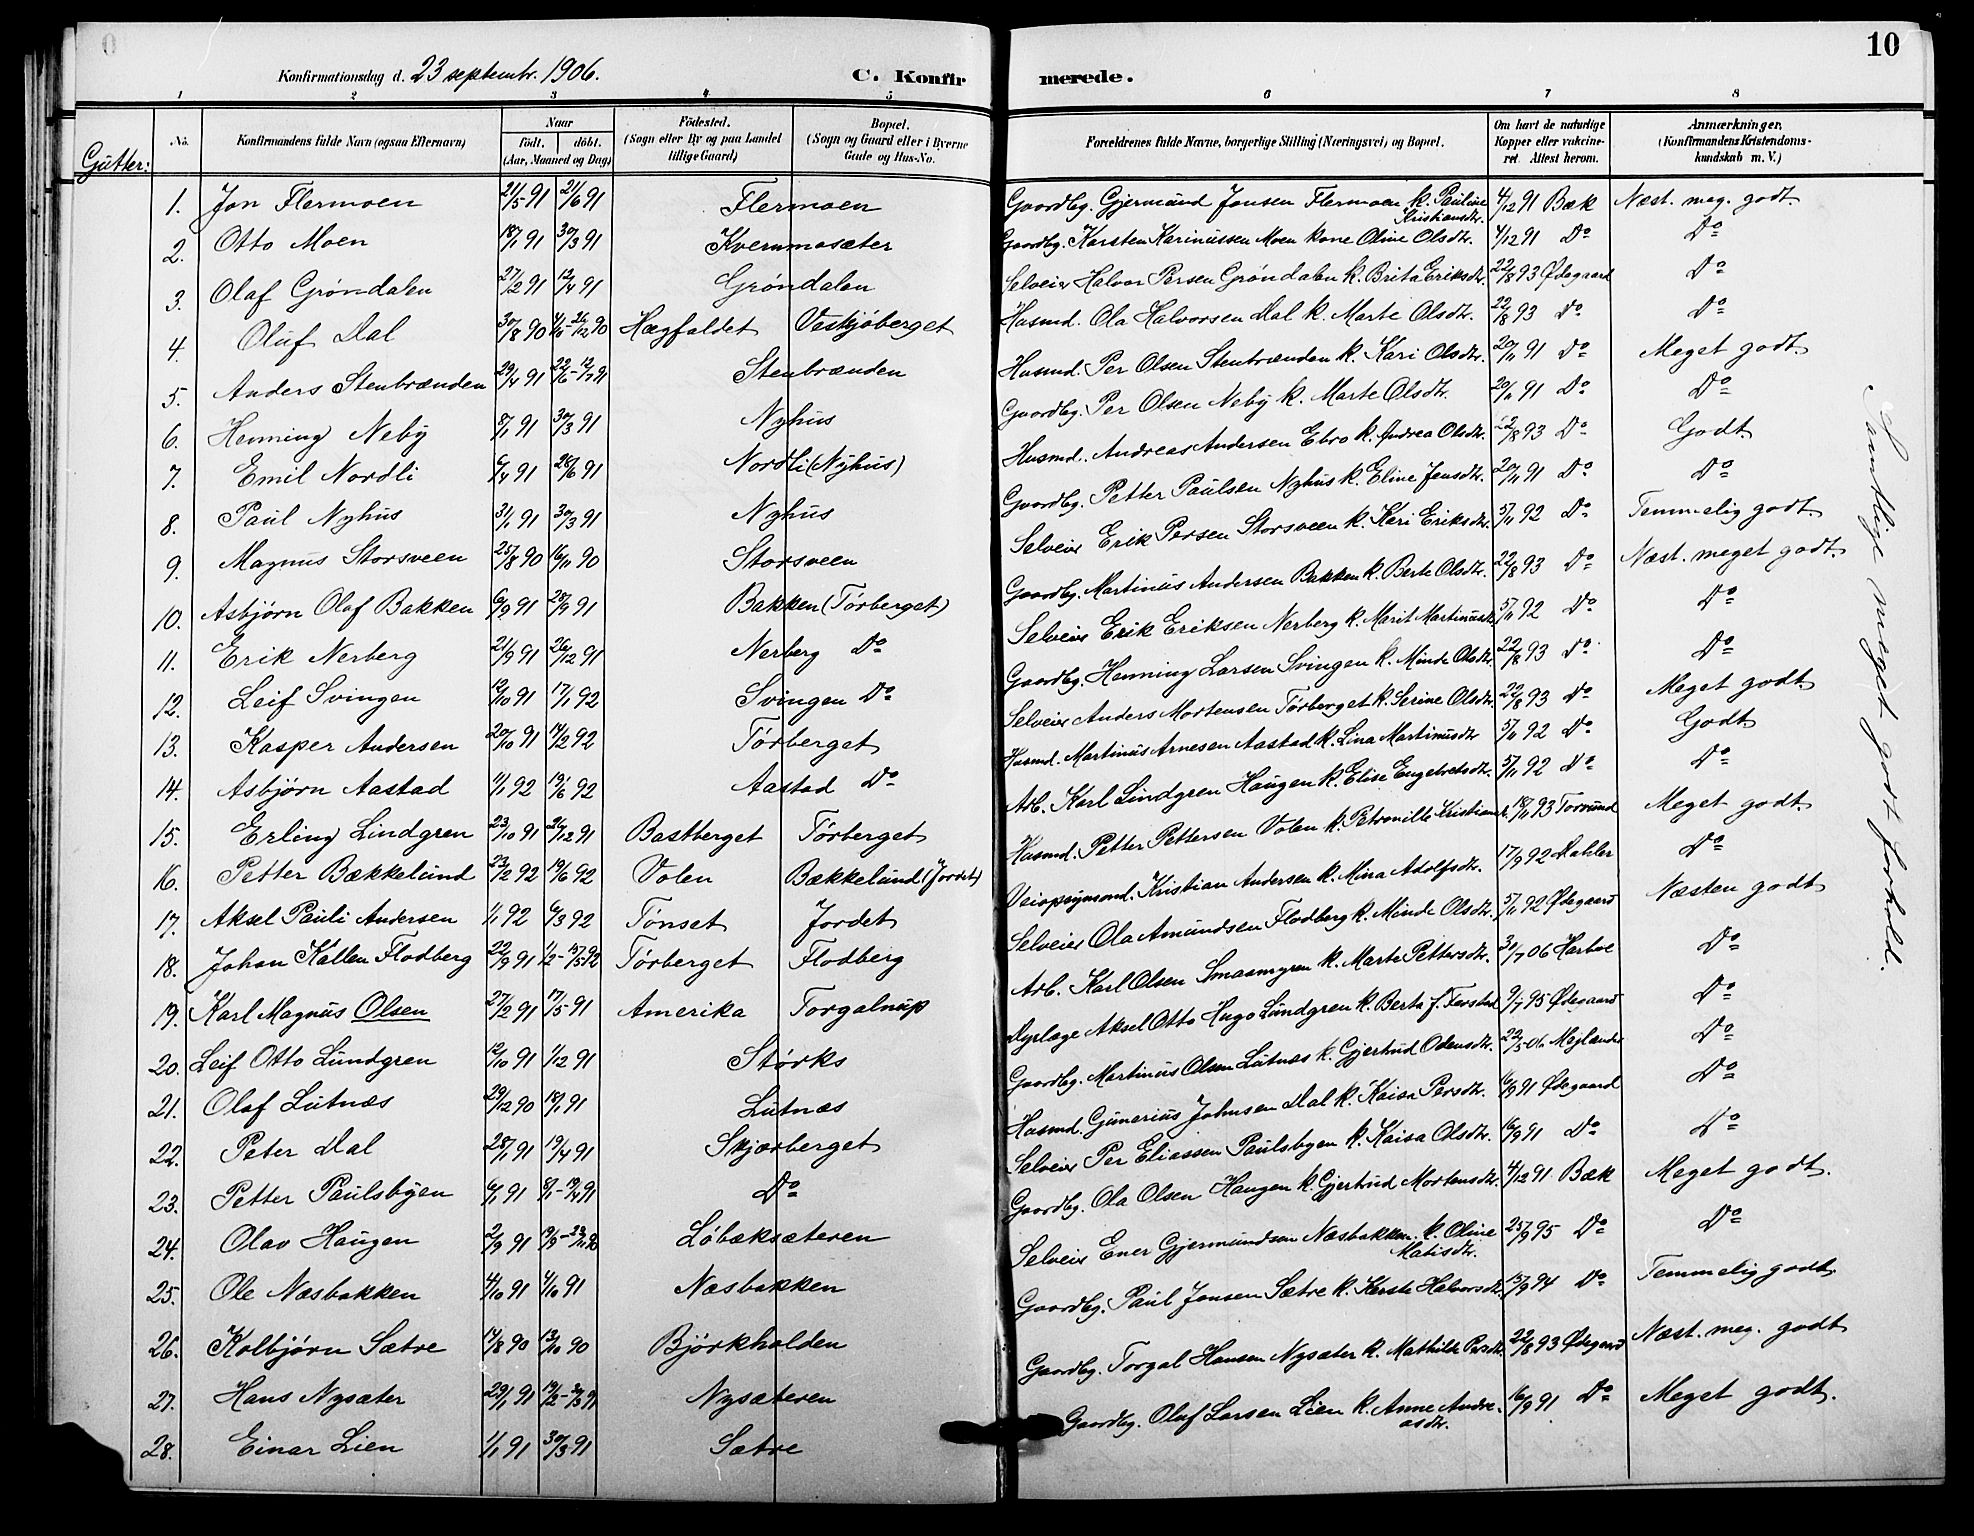 0
10
Konfirmationsdag d. 23 septembr. 1906.
C. Konfirmerede.
1 2 3 4 5 6 7 8
No. Konfirmandens fulde Navn (ogsaa Efternavn) Naar født. døbt. (Aar, Maaned og Dag) Fødested. (Sogn eller By og paa Landet tillige Gaard) Bopæl. (Sogn og Gaard eller i Byerne Gade og Hus-No. Forældrenes fulde Navne, borgerlige Stilling (Næringsvei) og Bopæl. Om havt de naturlige Kopper eller vakcineret. Attest herom. Anmærkninger. (Konfirmandens Kristendomskundskab m. V.)
Gutter:
1. Jon Flermoen 21/5 91 21/6 91 Flermoen Gaardbg. Gjermund Jonsen Flermoen k. Pauline Kristiansdtr. 4/12 91 Bæk Næst. meg. godt.
2. Otto Moen 18/1 91 30/3 91 Kvernmosæter Gaardbg. Karsten Karinussen Moen kone Oline Olsdtr. 4/12 91 Do Do
3. Olaf Grøndalen 27/2 91 12/4 91 Grøndalen Selveier Halvor Persen Grøndalen k. Brita Eriksdtr. 22/8 93 Ødegaard Do
4. Oluf Dal 30/8 90 Hægfaldet Veskjøberget Husmd. Ola Halvorsen Dal k. Marte Olsdtr. 22/8 93 Do Do
5. Anders Stenbrænden 29/4 91 Stenbrænden Husmd. Per Olsen Stenbrænden k. Kari Olsdtr. 20/11 91 Do Meget godt
6. Henning Neby 8/1 91 30/3 91 Nyhus Gaardbg. Per Olsen Neby k. Marte Olsdtr. 20/11 91 Do Do
7. Emil Nordli 6/4 91 28/6 91 Nordli (Nyhus) Husmd. Andreas Andersen Ebro k. Andrea Olsdtr. 22/8 93 Do Godt.
8. Paul Nyhus 31/1 91 30/3 91 Nyhus Gaardbg. Petter Paulsen Nyhus k. Eline Jensdtr. 20/11 91 Do Do
9. Magnus Storsveen 25/8 90 16/11 90 Storsveen Selveier Erik Persen Storsveen k. Kari Eriksdtr. 5/11 92 Do Temmelig godt.
10. Asbjørn Olaf Bakken 6/9 91 28/9 91 Bakken (Tørberget) Gaardbg. Martinus Andersen Bakken k. Berte Olsdtr. 22/8 93 Do Næst. meget godt.
11. Erik Nerberg 21/9 91 26/12 91 Nerberg Do Selveier Erik Eriksen Nerberg k. Marit Martinusdtr. 5/11 92 Do Do
12. Leif Svingen 12/10 91 17/1 92 Svingen Do Gaardbg. Henning Larsen Svingen k. Minde Olsdtr. 22/8 93 Do Do
13. Kasper Andersen 20/10 91 14/2 92 Tørberget Selveier Anders Mortensen Tørberget k. Serine Olsdtr. 22/8 93 Do Meget godt.
14. Asbjørn Aastad 11/1 92 19/6 92 Aastad Do Husmd. Martinus Arnesen Aastad k. Lina Martinusdtr 5/11 92 Do Godt
15. Erling Lindgren 23/10 91 26/12 91 Bastberget Tørberget Arb. Karl Lindgren Haugen k. Elise Engebretsdtr. 5/11 92 Do Do
16. Petter Bækkelund 23/2 92 19/6 92 Volen Bækkelund (Jordet) Husmd. Petter Pettersen Volen k. Petronille Kristiansdtr. 18/11 93 Torrund Meget godt
17. Aksel Pauli Andersen 1/1 92 6/3 92 Tønset Jordet Veiopsynsmd. Kristian Andersen k. Mina Adolfsdtr. 17/9 92 Mahler Do
18. Johan Kallen Flodberg 22/9 91 Tørberget Flodberg Selveier Ola Amundsen Flodberg k. Minde Olsdtr. 5/11 92 Ødegaard Næsten godt
19. Karl Magnus Olsen 27/2 91 17/5 91 Amerika Torgalnup Arb. Karl Olsen Smaamyren k. Marte Pettersdtr. 30/7 06 Hartve Do
20. Leif Otto Lundgren 12/10 91 1/12 91 Størks Dyrlæge Aksel Otto Hugo Lundgren k. Berta f. Terstad 9/7 95 Ødegaard Do
21. Olaf Lutnæs 29/12 90 18/1 91 Lutnæs Gaardbg. Martinus Olsen Lutnæs k. Gjertrud Odensdtr. 22/5 06 Mejlænder Do
22. Peter Dal 28/1 91 19/4 91 Skjærberget Husmd. Gunerius Johnsen Dal k. Kaisa Persdtr. 16/9 91 Ødegaard Do
23. Petter Paulsbyen 6/1 91 Do Selveier Per Eliassen Paulsbyen k. Kaisa Olsdtr. 16/9 91 Do Do
24. Olav Haugen 2/9 91 Løbæksæteren Gaardbg. Ola Olsen Haugen k. Gjertrud Mortensdtr. 4/12 91 Bæk Meget godt.
25. Ole Næsbakken 4/10 91 4/10 91 Næsbakken Selveier Ener Gjermundsen Næsbakken k. Oline Matisdtr. 25/9 95 Do Do
26. Kolbjørn Sætre 14/8 90 13/10 90 Bjørkholden Gaardbg. Paul Jonsen Sætre k. Kerste Halvorsdtr. 15/9 94 Do Temmelig godt
27. Hans Nysæter 29/1 91 Nysæteren Gaardbg. Torgal Hansen Nysæter k. Mathilde Persdtr. 22/8 93 Ødegaard Næst. meg. godt
28. Einar Lien 1/1 91 30/3 91 Sætre Gaardbg. Olaf Larsen Lien k. Anne Andreasdtr. 16/9 91 Do Meget godt.
Samtlige meget godt forhold.